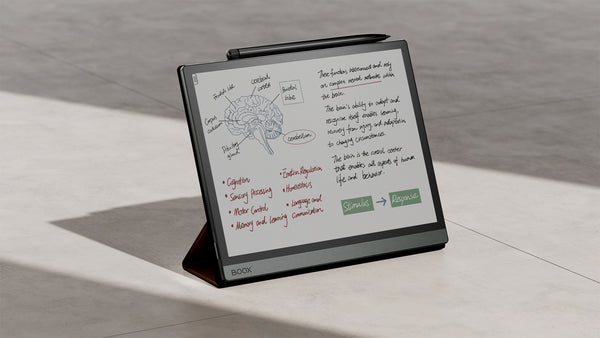 Frontal lobe
cerebral
cortex
Parietal
lobe
Corpus
callosum
Pituitary
gland
cerebellum
• Cognition
• Sensory Processing
• Motor Control
• Memory and Learning
• Emotion Regulation
• Homeostasis
• Language and
communication
These functions interconnected and rely
on complex neural networks within
the brain.
The brain's ability to adapt and
reorganize itself enables learning,
recovery from injury and adaptation
to changing circumstances.
The brain is the control center
that enables all aspects of human
life and behavior.
Stimulus → Response
BOOX